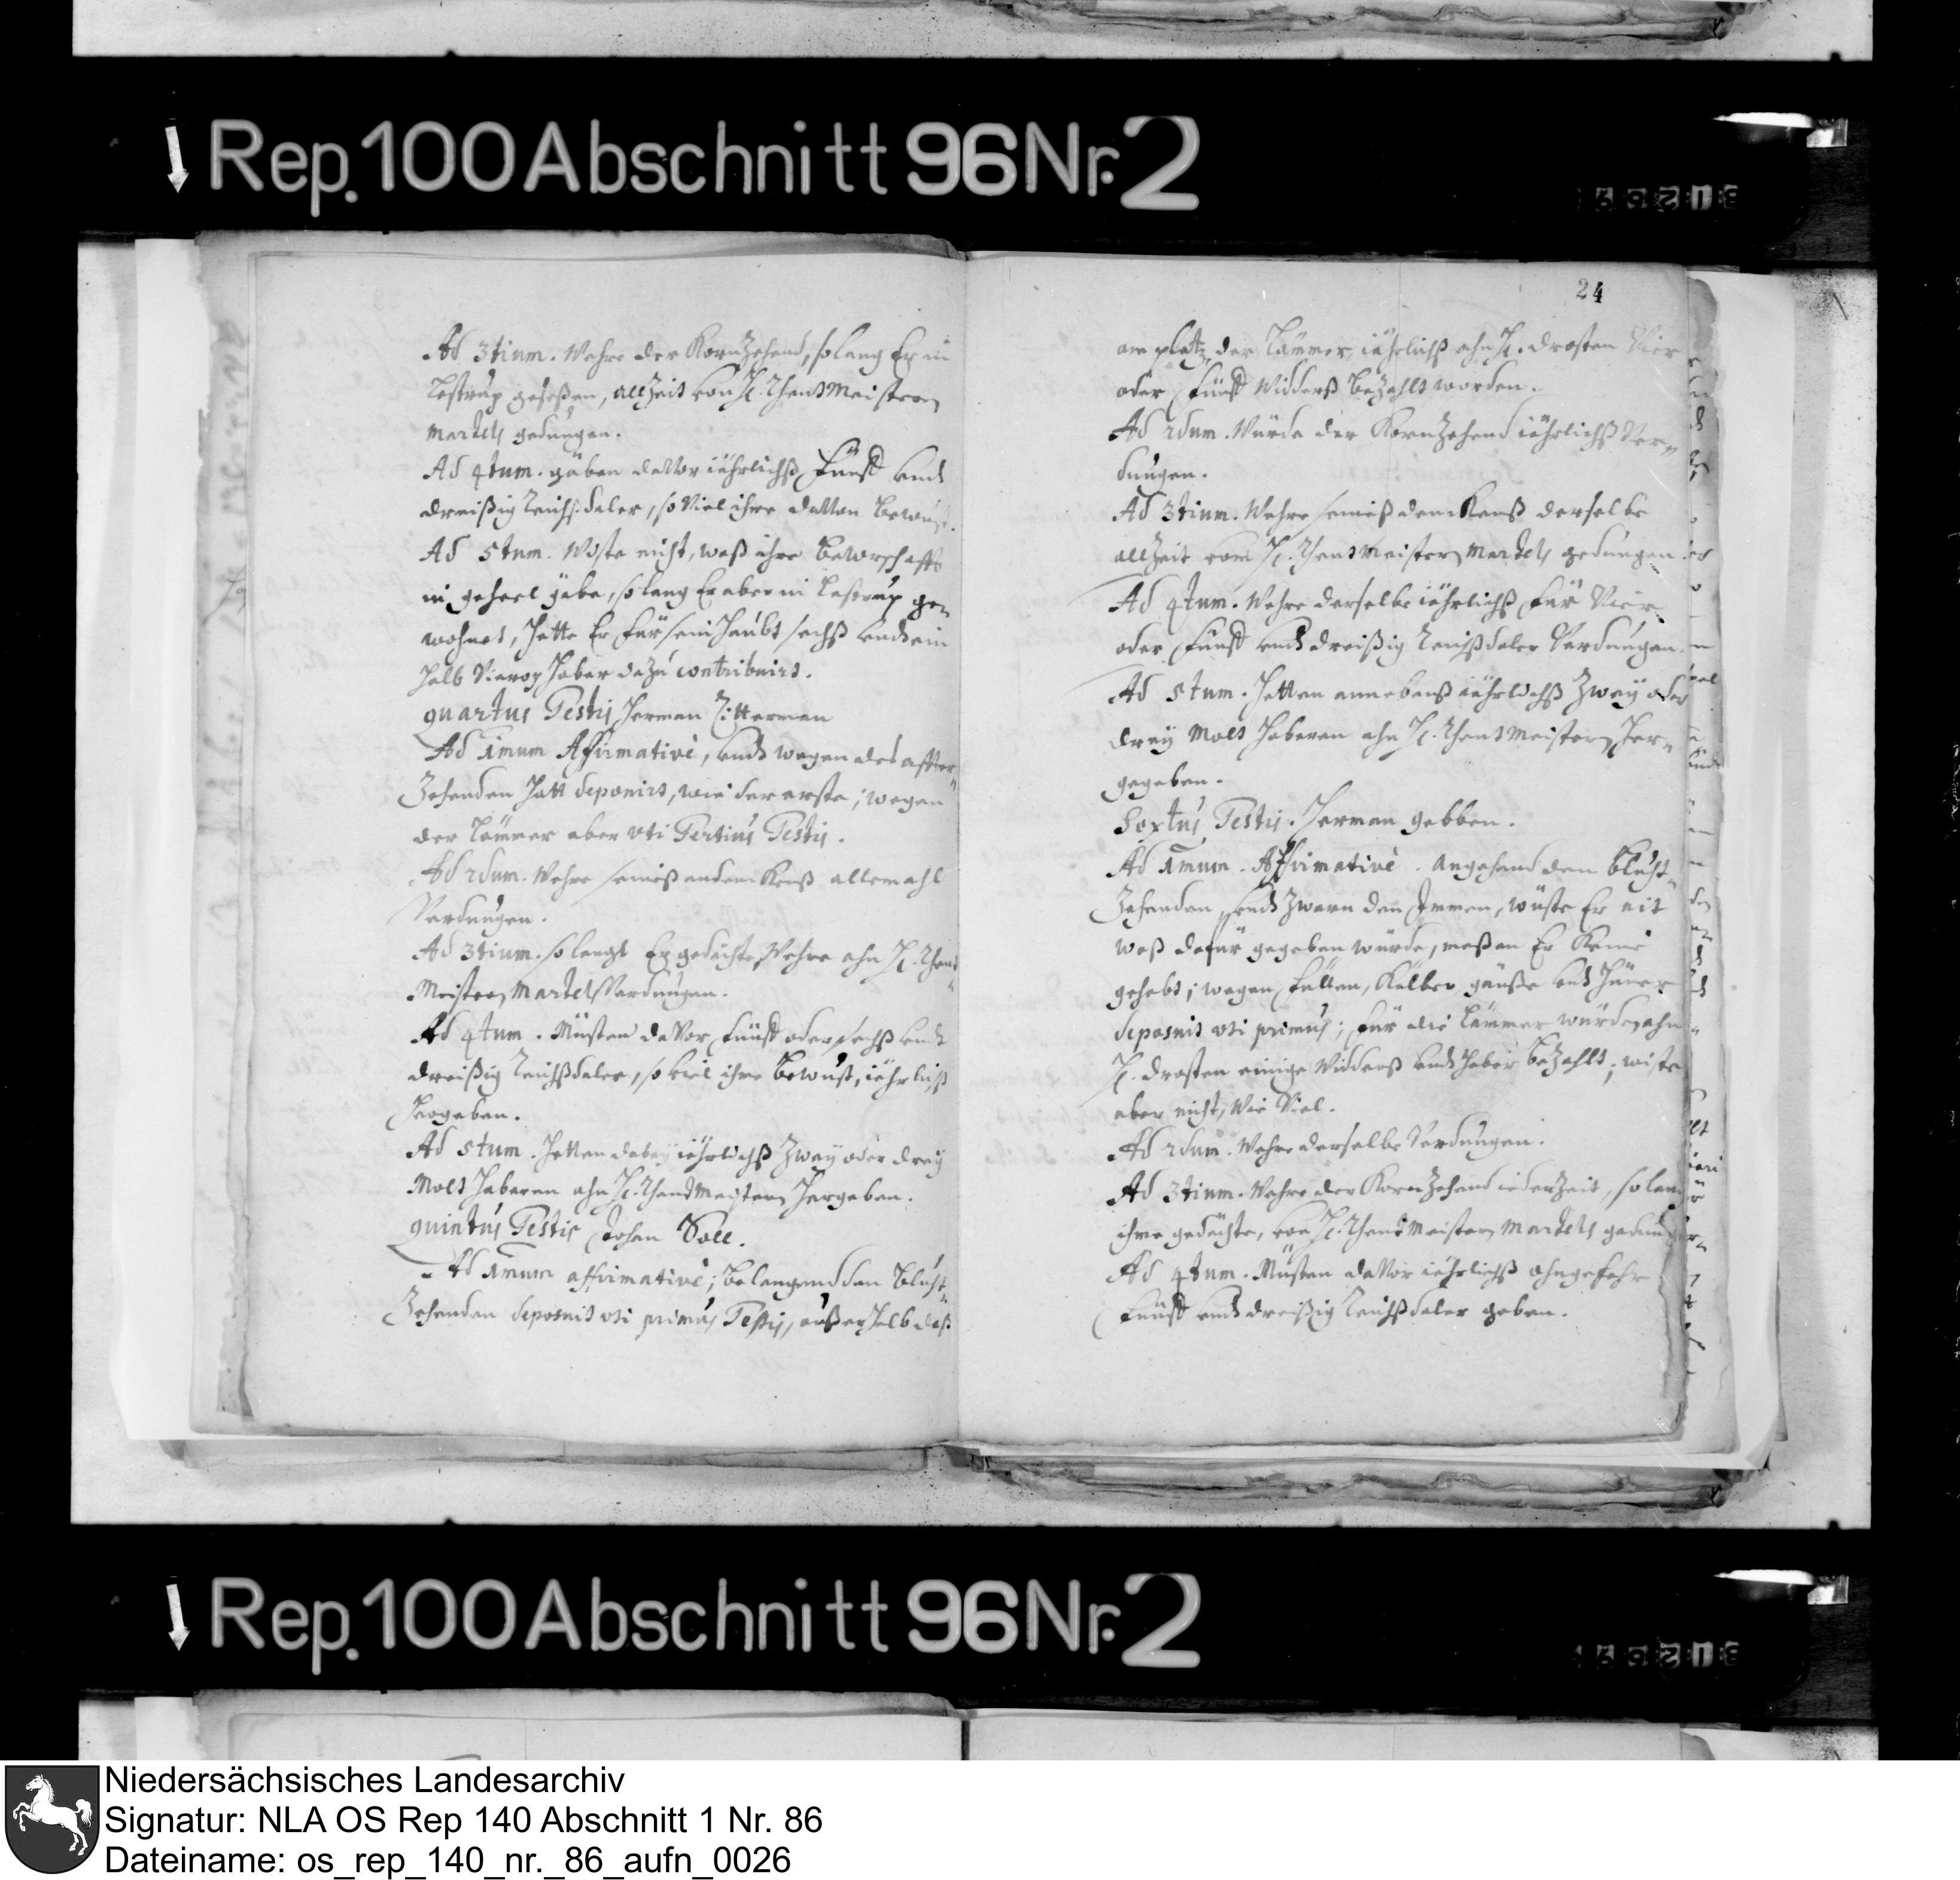 Rep. 100 Abschnitt 96 Nr. 2
Ad 3tium. Wehre der Kornzehend, so lang Er in
Lastrup geseßen, allzeit von H. Rhentmeistern
Martels gedungen.
Ad 4tum. gäben davor iährlichß Fünff undt
dreißig Reichsdaler, so Viel ihme davon bewust.
Ad 5tum. Wiste nicht, waß ihre bawrschafft
in geheel gäbe, so lang Er aber in Lastrup ge-
wohnet, hette Er für sein Haubt sechß undt ein
halb Vierop Haber dazu contribuirt.
Quartus Testis Herman Zitterman
Ad 1mum Affirmativè, undt wegen des affter
Zehenden hatt deponirt, wie der erste; wegen
der Lämmer aber uti Tertius Testis.
Ad 2dum. Wehre seineß andenckenß allemahl
Verdungen.
Ad 3tium. so langh Er gedächte, Wehre ahn H. Rhent-
Meistern Martels Verdungen.
Ad 4tum. Müsten davor Fünff oder sechß undt
dreißig Reichßdaler, so viel ihme bewust, iährlichß
hergeben.
Ad 5tum. Hetten dabey iährlichß Zwey oder drey
Molt Haberen ahn H. Rhentmeistern hergeben.
Quintus Testis Johan Voll.
Ad 1mum affirmativè; belangend den bluht-
Zehenden deposuit uti primus Testis, außerhalb daß
24
am platz der Lämmer iährlichß ahn H. drosten Vier
oder Fünff Widderß bezahlt worden.
Ad 2dum. Würde der Kornzehend iährlichß Ver-
dungen.
Ad 3tium. Wehre seineß denckenß derselbe
allzeit vom H. Rhentmeistern Martels gedungen
Ad 4tum. Wehre derselbe iährlichß für Vier
oder Fünff undt dreißig Reichßdaler Verdungen.
Ad 5tum. Hetten annebenß iährlichß Zwey oder
drey Molt Haberen ahn H. Rhentmeistern her-
gegeben.
Sextus Testis. Herman Gebben.
Ad 1mum. Affirmativè. angehend den bluht-
Zehenden, undt zwarn den Immen, wüste Er nit
waß dafür gegeben würde, maßen Er keine
gehabt; wegen Füllen, Kälber gänße undt Hüner
deposuit uti primus; für die Lämmer würden ahn
H. drosten einige Widderß undt Haber bezahlt; wiste
aber nicht, Wie Viel.
Ad 2dum. Wehre derselbe Verdungen.
Ad 3tium. Wehre der Kornzehend iederzeit, so lang
ihme gedächte, von H. Rhentmeistern Martels gedungen
Ad 4tum. Müsten davor iährlichß ohngefehr
Fünff undt dreißig Reichßdaler geben.
Rep. 100 Abschnitt 96 Nr. 2
Niedersächsisches Landesarchiv
Signatur: NLA OS Rep 140 Abschnitt 1 Nr. 86
Dateiname: os_rep_140_nr._86_aufn_0026